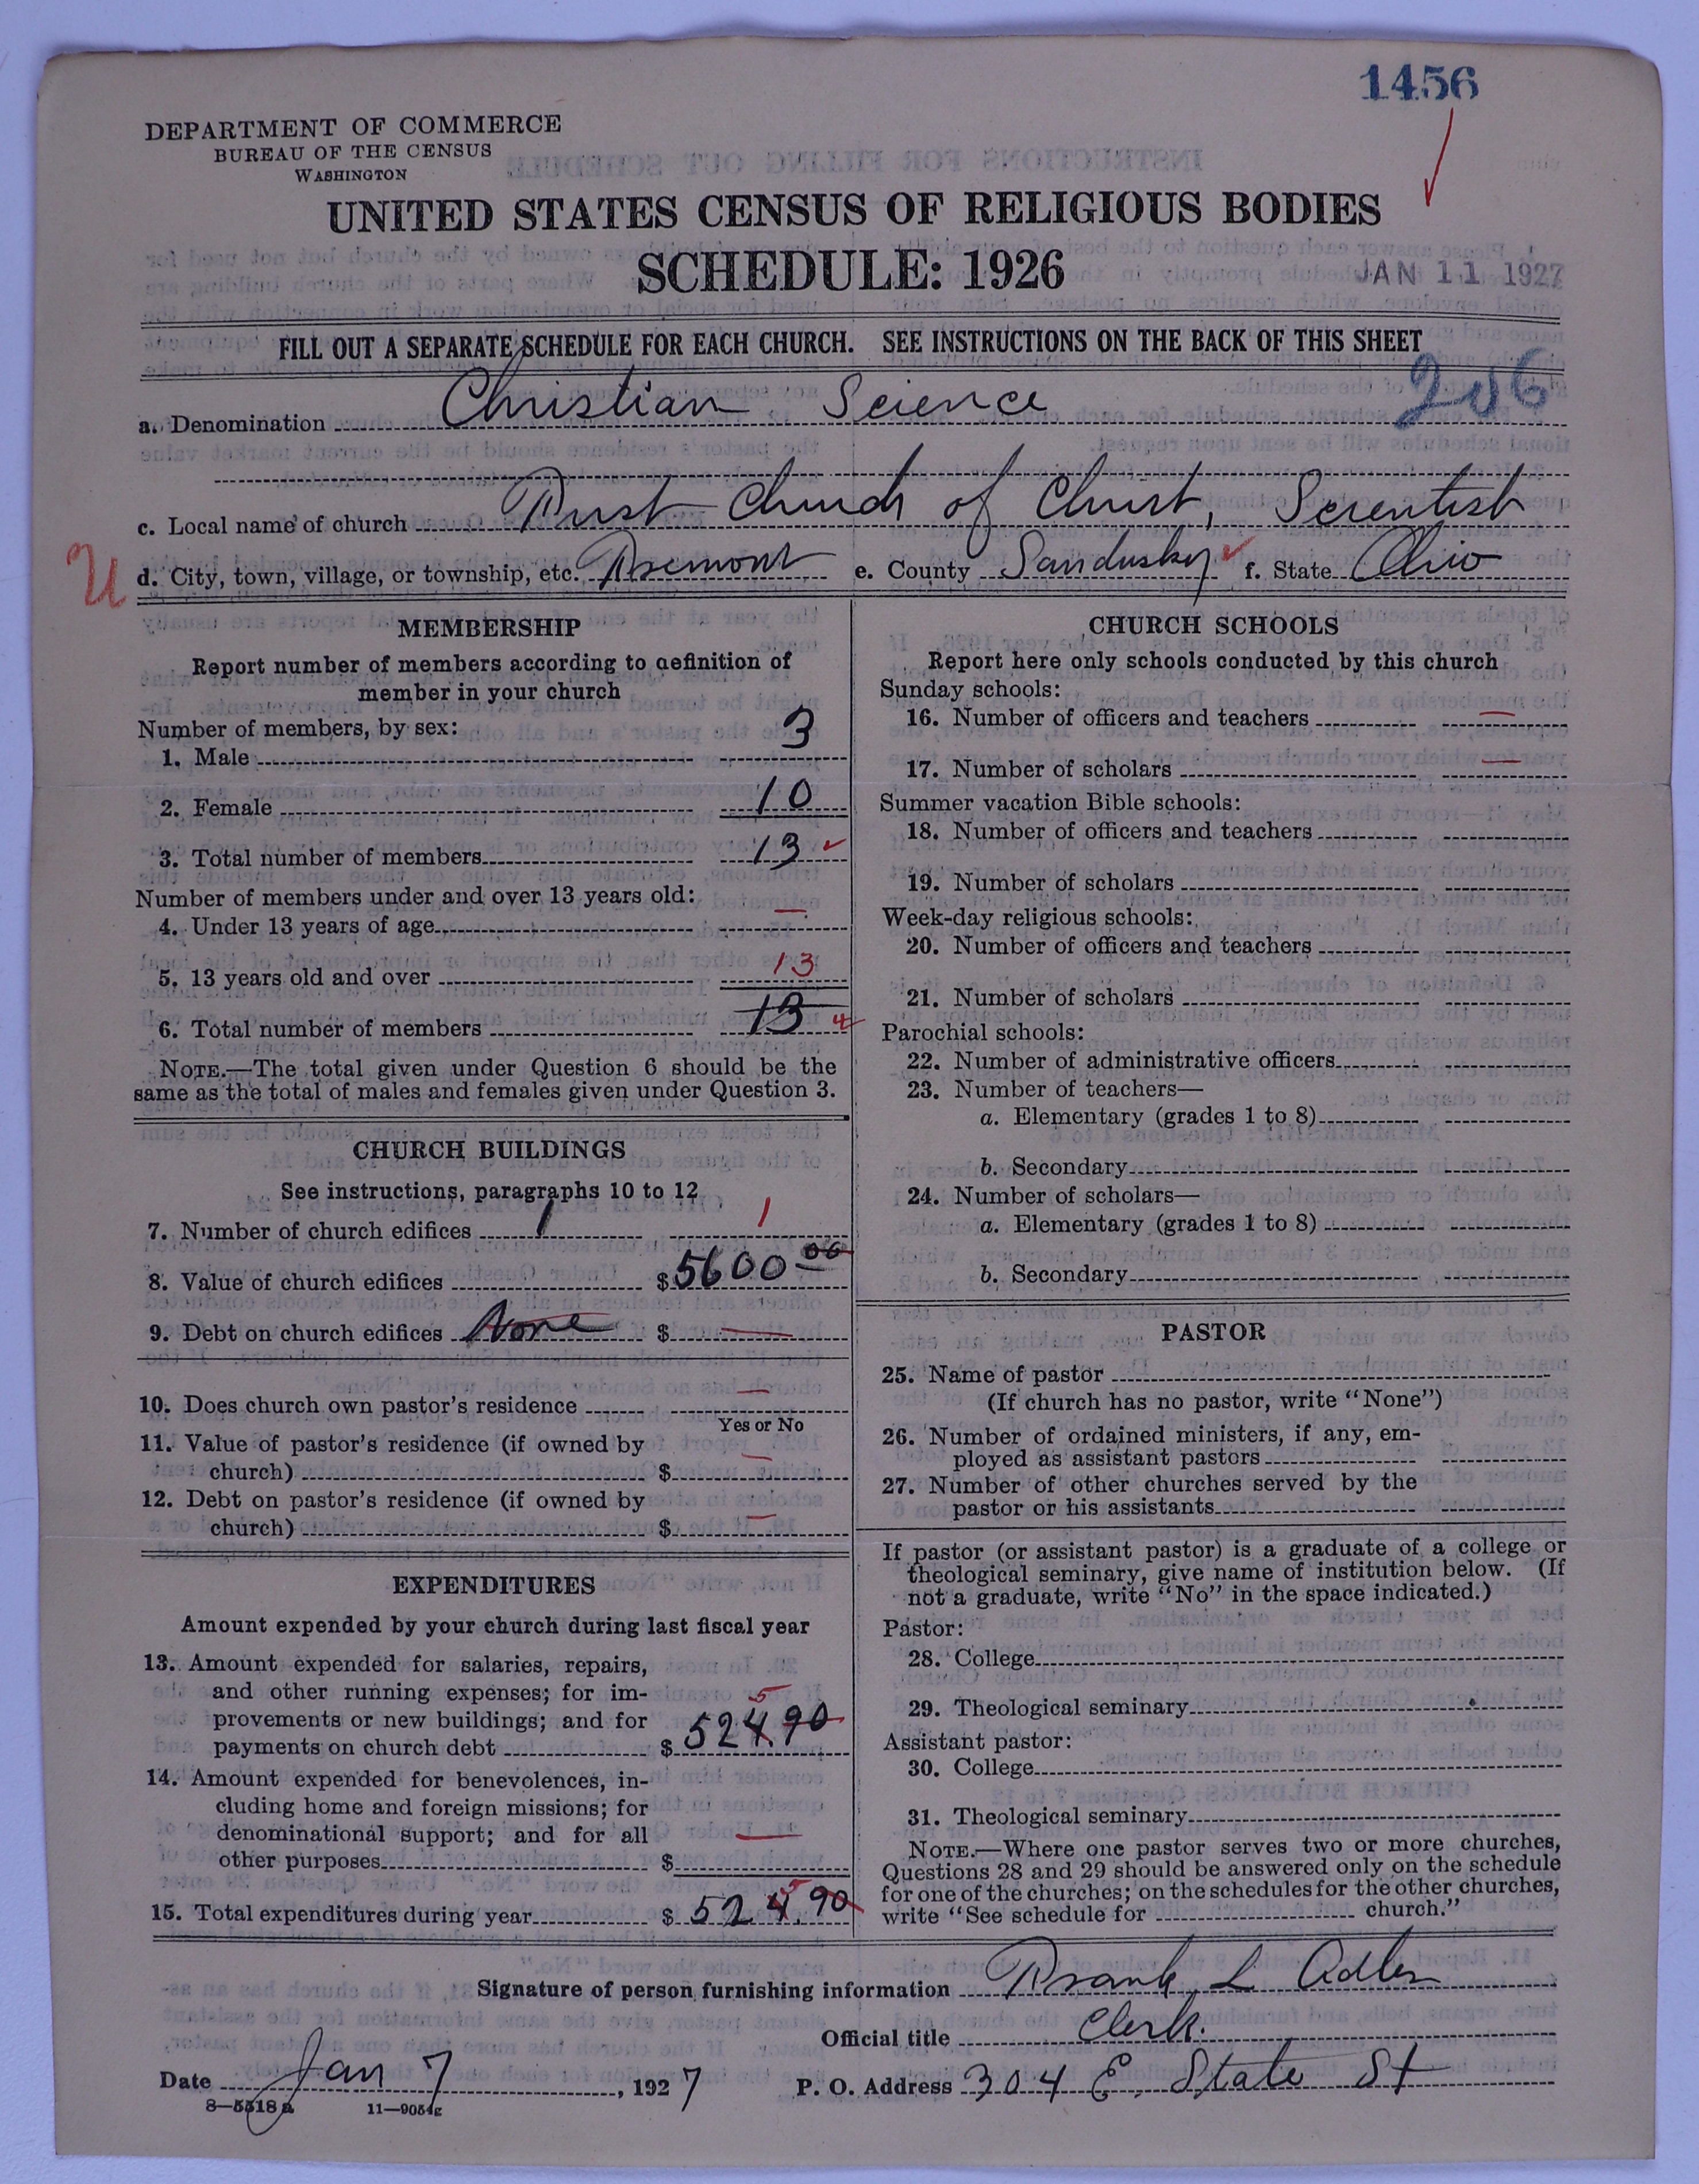 1456
DEPARTMENT OF COMMERCE
BUREAU OF THE CENSUS
WASHINGTON
UNITED STATES CENSUS OF RELIGIOUS BODIES
SCHEDULE: 1926
JAN 11 1927
FILL OUT A SEPARATE SCHEDULE FOR EACH CHURCH. SEE INSTRUCTIONS ON THE BACK OF THIS SHEET
206
a. Denomination Christian Science
c. Local name of church First Church of Christ, Scientist
U d. City, town, village, or township, etc. Fremont e. County Sandusky f. State Ohio
MEMBERSHIP
Report number of members according to definition of
member in your church
Number of members, by sex:
1. Male 3
2. Female 10
3. Total number of members 13
Number of members under and over 13 years old:
4. Under 13 years of age —
5. 13 years old and over 13
6. Total number of members 13
NOTE.—The total given under Question 6 should be the
same as the total of males and females given under Question 3.
CHURCH BUILDINGS
See instructions, paragraphs 10 to 12
7. Number of church edifices 1 1
8. Value of church edifices $ 5600 00
9. Debt on church edifices None $ —
10. Does church own pastor's residence —
Yes or No
11. Value of pastor's residence (if owned by
church) $ —
12. Debt on pastor's residence (if owned by
church) $ —
EXPENDITURES
Amount expended by your church during last fiscal year
13. Amount expended for salaries, repairs,
and other running expenses; for im-
provements or new buildings; and for
5
payments on church debt $ 524.90
14. Amount expended for benevolences, in-
cluding home and foreign missions; for
denominational support; and for all
other purposes $ —
5
15. Total expenditures during year $ 524.90
CHURCH SCHOOLS
Report here only schools conducted by this church
Sunday schools:
16. Number of officers and teachers —
17. Number of scholars —
Summer vacation Bible schools:
18. Number of officers and teachers
19. Number of scholars
Week-day religious schools:
20. Number of officers and teachers
21. Number of scholars
Parochial schools:
22. Number of administrative officers
23. Number of teachers—
a. Elementary (grades 1 to 8)
b. Secondary
24. Number of scholars—
a. Elementary (grades 1 to 8)
b. Secondary
PASTOR
25. Name of pastor
(If church has no pastor, write "None")
26. Number of ordained ministers, if any, em-
ployed as assistant pastors
27. Number of other churches served by the
pastor or his assistants
If pastor (or assistant pastor) is a graduate of a college or
theological seminary, give name of institution below. (If
not a graduate, write "No" in the space indicated.)
Pastor:
28. College
29. Theological seminary
Assistant pastor:
30. College
31. Theological seminary
NOTE.—Where one pastor serves two or more churches,
Questions 28 and 29 should be answered only on the schedule
for one of the churches; on the schedules for the other churches,
write "See schedule for church."
Signature of person furnishing information Frank L Adler
Official title Clerk.
Date Jan 7, 1927 P. O. Address 304 E. State St
8—5518 a 11—9054g